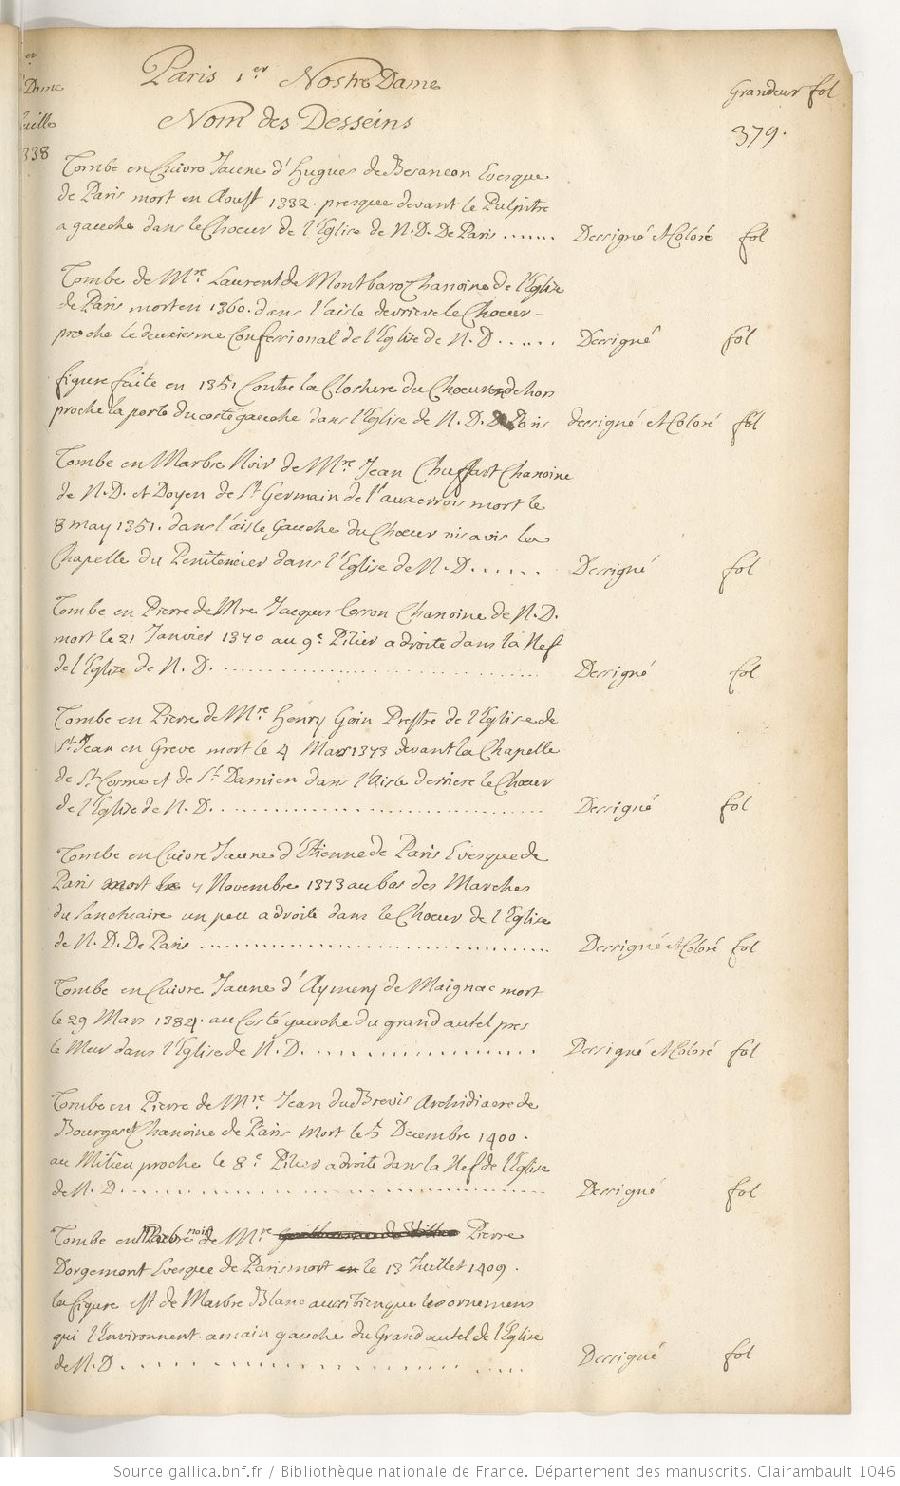 Paris 1er Nostre Dame
Grandeur fol
Nom des Desseins
379.
338
Tombe en Cuivre Jaune d'Hugues de Besancon Evesque
de Paris mort en Aoust 1332 presque devant le Pulpitre
a gauche dans le Choeur de l'Eglise de N. D. De Paris ...... Dessigné et Coloré fol
Tombe de Mre Laurent de Montbaro Chanoine de l'Eglise
de Paris mort en 1360. dans l'aisle derriere le Choeur
proche le deuxiesme Confessional de l'Eglise de N. D ...... Dessigné fol
figure faite en 1351 Contre la Closture du Choeur dehors
proche la porte du costé gauche dans l'Eglise de N. D. De Paris dessigné et Coloré fol
Tombe en Marbre Noir de Mre Jean Chuffart Chanoine
de N. D. et Doyen de St Germain de l'auxerrois mort le
8 may 1351. dans l'aisle Gauche du Choeur vis a vis la
Chapelle du Penitencier dans l'Eglise de N. D...... Dessigné fol
Tombe en Pierre de Mre Jacques Chanoine de N. D.
mort le 21 Janvier 1370 au 9e Pilier a droite dans la Nef
de l'Eglise de N. D. ........ Dessigné fol
Tombe en Pierre de Mre Henry Goin Prestre de l'Eglise de
St Jean en Greve mort le 4 Mars 1373 devant la Chapelle
de St Cosme et de St Damien dans l'Aisle derriere le Choeur
de l'Eglise de N. D. ........ Dessigné fol
Tombe en Cuivre Jaune d'Etienne de Paris Evesque de
Paris mort le 7 Novembre 1373 au bas des Marches
du Sanctuaire un peu a droite dans le Choeur de l'Eglise
de N. D. De Paris ........ Dessigné et Coloré fol
Tombe en Cuivre Jaune d'Aymery de Maignac mort
le 29 Mars 1384. au Costé gauche du grand autel pres
le Mur dans l'Eglise de N. D. ........ Dessigné et Coloré fol
Tombe en Pierre de Mre Jean du Brevis Archidiacre de
Bourges et Chanoine de Paris Mort le 5 Decembre 1400.
au Milieu proche le 8e Pilier a droite dans la Nef de l'Eglise
de N. D. ........ Dessigné fol
Tombe en Marbre noir de Mre Pierre
Dorgemont Evesque de Paris mort le 13 Juillet 1409.
la figure est de Marbre Blanc aussi bien que les ornemens
qui l'Environnent a main gauche du Grand autel de l'Eglise
de N. D. ........ Dessigné fol
Source gallica.bnf.fr / Bibliothèque nationale de France. Département des manuscrits. Clairambault 1046